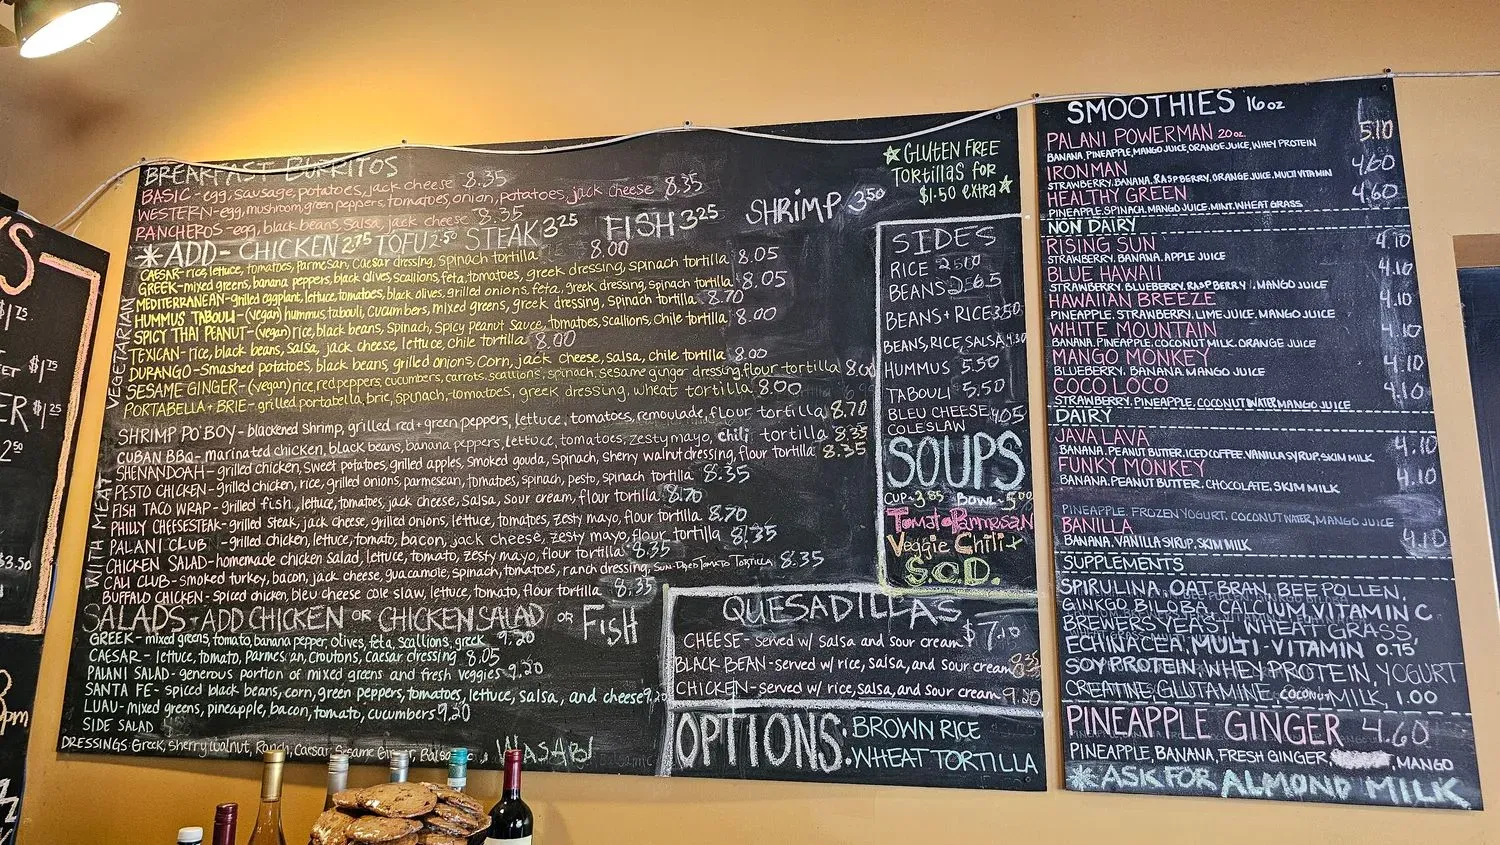 S
$1.75
$1.75
ER $1.25
2.50
$3.50
pm
BREAKFAST BURRITOS
BASIC - egg, sausage, potatoes, jack cheese 8.35
WESTERN - egg, mushroom, green peppers, tomatoes, onion, potatoes, jack cheese 8.35
RANCHEROS - egg, black beans, salsa, jack cheese 8.35
*ADD - CHICKEN 2.75 TOFU 2.50 STEAK 3.25 FISH 3.25 SHRIMP 3.50
VEGETARIAN
CAESAR - rice, lettuce, tomatoes, parmesan, caesar dressing, spinach tortilla 8.00
GREEK - mixed greens, banana peppers, black olives, scallions, feta, tomatoes, greek dressing, spinach tortilla 8.05
MEDITERRANEAN - grilled eggplant, lettuce, tomatoes, black olives, grilled onions, feta, greek dressing, spinach tortilla 8.05
HUMMUS TABOULI - (vegan) hummus, tabouli, cucumbers, mixed greens, greek dressing, spinach tortilla 8.70
SPICY THAI PEANUT - (vegan) rice, black beans, spinach, spicy peanut sauce, tomatoes, scallions, chile tortilla 8.00
TEXICAN - rice, black beans, salsa, jack cheese, lettuce, chile tortilla 8.00
DURANGO - smashed potatoes, black beans, grilled onions, corn, jack cheese, salsa, chile tortilla 8.00
SESAME GINGER - (vegan) rice, red peppers, cucumbers, carrots, scallions, spinach, sesame ginger dressing, flour tortilla 8.00
PORTABELLA + BRIE - grilled portabella, brie, spinach, tomatoes, greek dressing, wheat tortilla 8.00
WITH MEAT
SHRIMP PO'BOY - blackened shrimp, grilled red + green peppers, lettuce, tomatoes, remoulade, flour tortilla 8.70
CUBAN BBQ - marinated chicken, black beans, banana peppers, lettuce, tomatoes, zesty mayo, chili tortilla 8.35
SHENANDOAH - grilled chicken, sweet potatoes, grilled apples, smoked gouda, spinach, sherry walnut dressing, flour tortilla 8.35
PESTO CHICKEN - grilled chicken, rice, grilled onions, parmesean, tomatoes, spinach, pesto, spinach tortilla 8.35
FISH TACO WRAP - grilled fish, lettuce, tomatoes, jack cheese, salsa, sour cream, flour tortilla 8.70
PHILLY CHEESESTEAK - grilled steak, jack cheese, grilled onions, lettuce, tomatoes, zesty mayo, flour tortilla 8.70
PALANI CLUB - grilled chicken, lettuce, tomato, bacon, jack cheese, zesty mayo, flour tortilla 8.35
CHICKEN SALAD - homemade chicken salad, lettuce, tomato, zesty mayo, flour tortilla 8.35
CALI CLUB - smoked turkey, bacon, jack cheese, guacamole, spinach, tomatoes, ranch dressing, SUN-DRIED TOMATO TORTILLA 8.35
BUFFALO CHICKEN - spiced chicken, bleu cheese cole slaw, lettuce, tomato, flour tortilla 8.35
SALADS - ADD CHICKEN OR CHICKEN SALAD OR FISH
GREEK - mixed greens, tomato, banana pepper, olives, feta, scallions, greek 9.20
CAESAR - lettuce, tomato, Parmesan, croutons, Caesar dressing 8.05
PALANI SALAD - generous portion of mixed greens and fresh veggies 9.20
SANTA FE - spiced black beans, corn, green peppers, tomatoes, lettuce, salsa, and cheese 9.20
LUAU - mixed greens, pineapple, bacon, tomato, cucumbers 9.20
SIDE SALAD
DRESSINGS: Greek, Sherry Walnut, Ranch, Caesar, Sesame Ginger, Balsamic, WASABI
★ GLUTEN FREE
TORTILLAS FOR
$1.50 extra ★
SIDES
RICE
BEANS
BEANS + RICE 3.50
BEANS, RICE, SALSA 4.30
HUMMUS 5.50
TABOULI 5.50
BLEU CHEESE 4.05
COLESLAW
SOUPS
CUP - 3.85 BOWL - 5.00
Tomato Parmesan
Veggie Chili +
S.O.D.
QUESADILLAS
CHEESE - served w/ salsa and sour cream $7.10
BLACK BEAN - served w/ rice, salsa, and sour cream 8.35
CHICKEN - served w/ rice, salsa, and sour cream 9.20
OPTIONS: BROWN RICE
WHEAT TORTILLA
SMOOTHIES 16 oz
PALANI POWERMAN 20 oz. 5.10
BANANA, PINEAPPLE, MANGO JUICE, ORANGE JUICE, WHEY PROTEIN
IRONMAN 4.60
STRAWBERRY, BANANA, RASPBERRY, ORANGE JUICE, MULTI VITAMIN
HEALTHY GREEN 4.60
PINEAPPLE, SPINACH, MANGO JUICE, MINT, WHEAT GRASS
NON DAIRY
RISING SUN 4.10
STRAWBERRY, BANANA, APPLE JUICE
BLUE HAWAII 4.10
STRAWBERRY, BLUEBERRY, RASPBERRY, MANGO JUICE
HAWAIIAN BREEZE 4.10
PINEAPPLE, STRAWBERRY, LIME JUICE, MANGO JUICE
WHITE MOUNTAIN 4.10
BANANA, PINEAPPLE, COCONUT MILK, ORANGE JUICE
MANGO MONKEY 4.10
BLUEBERRY, BANANA, MANGO JUICE
COCO LOCO 4.10
STRAWBERRY, PINEAPPLE, COCONUT WATER, MANGO JUICE
DAIRY
JAVA LAVA 4.10
BANANA, PEANUT BUTTER, ICED COFFEE, VANILLA SYRUP, SKIM MILK
FUNKY MONKEY 4.10
BANANA, PEANUT BUTTER, CHOCOLATE, SKIM MILK
PINEAPPLE, FROZEN YOGURT, COCONUT WATER, MANGO JUICE
BANILLA 4.10
BANANA, VANILLA SYRUP, SKIM MILK
SUPPLEMENTS
SPIRULINA, OAT BRAN, BEE POLLEN,
GINKGO BILOBA, CALCIUM, VITAMIN C
BREWERS YEAST, WHEAT GRASS,
ECHINACEA, MULTI-VITAMIN 0.75
SOY PROTEIN, WHEY PROTEIN, YOGURT
CREATINE, GLUTAMINE, COCONUT MILK, 1.00
PINEAPPLE GINGER 4.60
PINEAPPLE, BANANA, FRESH GINGER, MANGO
*ASK FOR ALMOND MILK